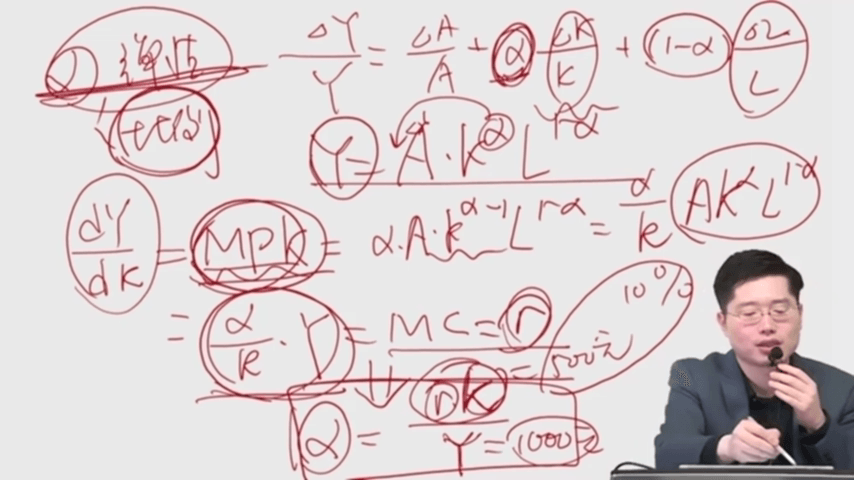 α 弹性 ΔY/Y = ΔA/A + α ΔK/K + (1-α) ΔL/L
Y = A·K^α L^1-α
dY/dK = MPK = α·A·K^α-1 L^1-α = α/K AK^α L^1-α
= α/K · Y = MC = r 10%
α = rK/Y = 500元/1000元